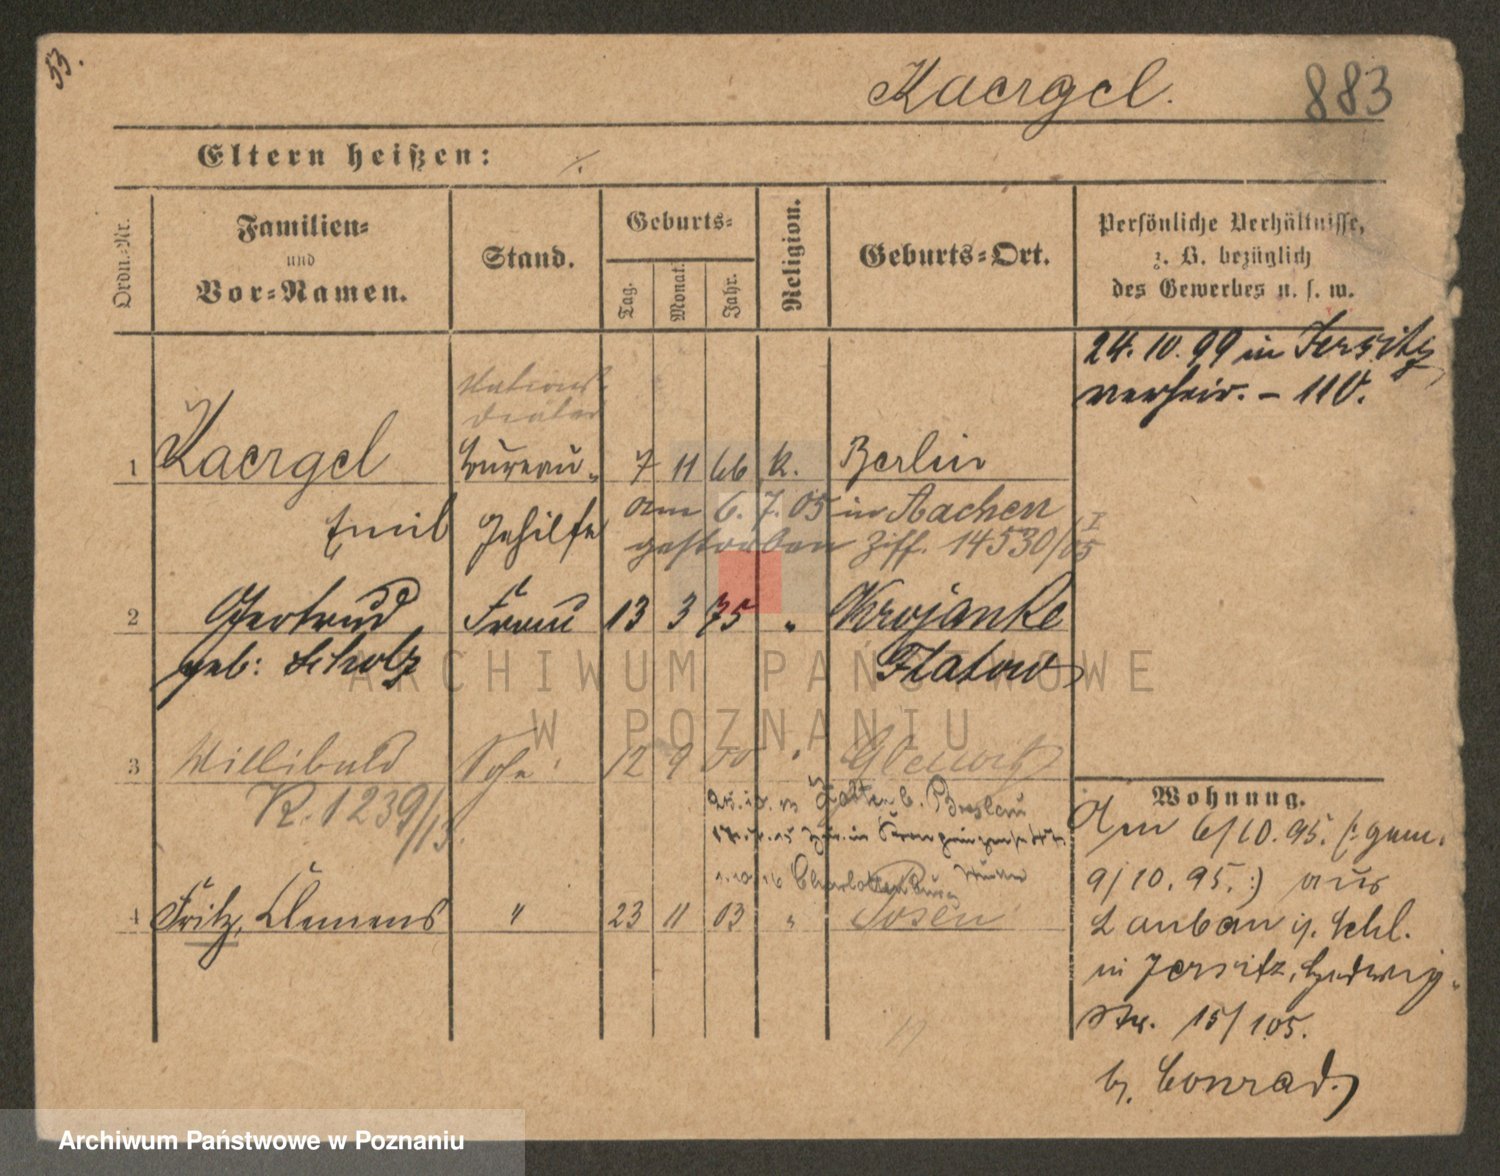 53.
Kaergel. 883
Eltern heißen: ⁒
Ordn.-Nr.
Familien-
und
Vor-Namen.
Stand.
Geburts-
Tag.
Monat.
Jahr.
Religion.
Geburts-Ort.
Persönliche Verhältnisse,
z. B. bezüglich
des Gewerbes u. s. w.
24. 10. 99 in Jersitz
verheir. - 110.
1 Kaergel Bureau- 7 11 66 K. Berlin
Emil Gehilfe
am 6. 7. 05 in Aachen
gestorben Ziff. 14530/05 I
2 Gertrud Frau 13 3 75 " Krojanke
geb: Scholz Flatow
3 Willibald Sohn 12 9 00 "
K. 1239/13.
b. Breslau
Charlottenburg
4 Fritz, Clemens " 23 11 03 " Posen
Wohnung.
Am 6/10. 95. (: gem.
9/10. 95. :) aus
Lauban i. Schl.
in Jersitz, Hedwig-
Str. 15/105.
b. Conrad.
ARCHIWUM PAŃSTWOWE
W POZNANIU
Archiwum Państwowe w Poznaniu